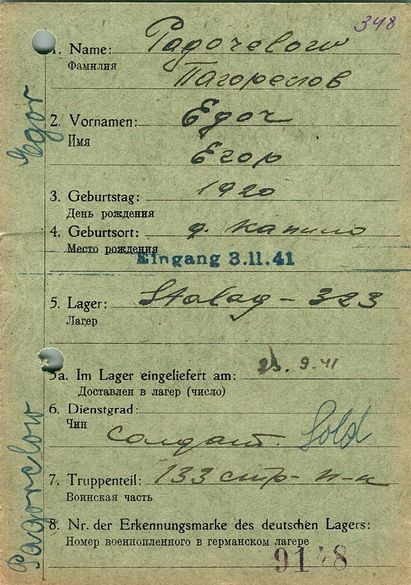 348
1. Name: Радочевого
Фамилия
Пагореслов
2. Vornamen: Едоч
Имя
Егор
3. Geburtstag: 1920
День рождения
4. Geburtsort: д. Капино
Место рождения
Eingang 3.11.41
5. Lager: Stalag – 323
Лагер
5a. Im Lager eingeliefert am: 23.9.41
Доставлен в лагер (число)
6. Dienstgrad:
Чин
Солдат. Sold
7. Truppenteil: 133 стр-п-к
Воинская часть
8. Nr. der Erkennungsmarke des deutschen Lagers:
Номер военнопленного в германском лагере
91 8
Egor
Pagorelow